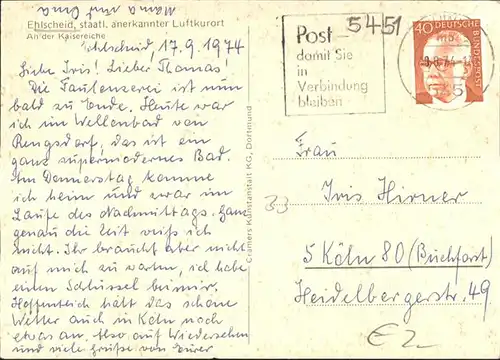 Mama und Oma
Ehlscheid, staatl. anerkannter Luftkurort
An der Kaisereiche
Ehlscheid, 17.9.1974
Liebe Iris! Lieber Thomas!
Die Faulenzerei ist nun
bald zu Ende. Heute war
ich im Wellenbad von
Rengsdorf, das ist ein
ganz supermodernes Bad.
Am Donnerstag komme
ich heim und zwar im
Laufe des Nachmittags. Ganz
genau die Zeit weiß ich
nicht. Ihr braucht aber nicht
auf mich zu warten, ich habe
einen Schlüssel bei mir.
Hoffentlich hält das schöne
Wetter auch in Köln noch
etwas an. Also auf Wiedersehen
und viele Grüße von Eurer
Cramers Kunstanstalt KG, Dortmund
5451
Post
damit Sie
in
Verbindung
bleiben
40
DEUTSCHE
BUNDESPOST
545
Frau
Iris Hirner
33
5 Köln 80 (Buchfort)
Heidelbergerstr. 49
€ 2